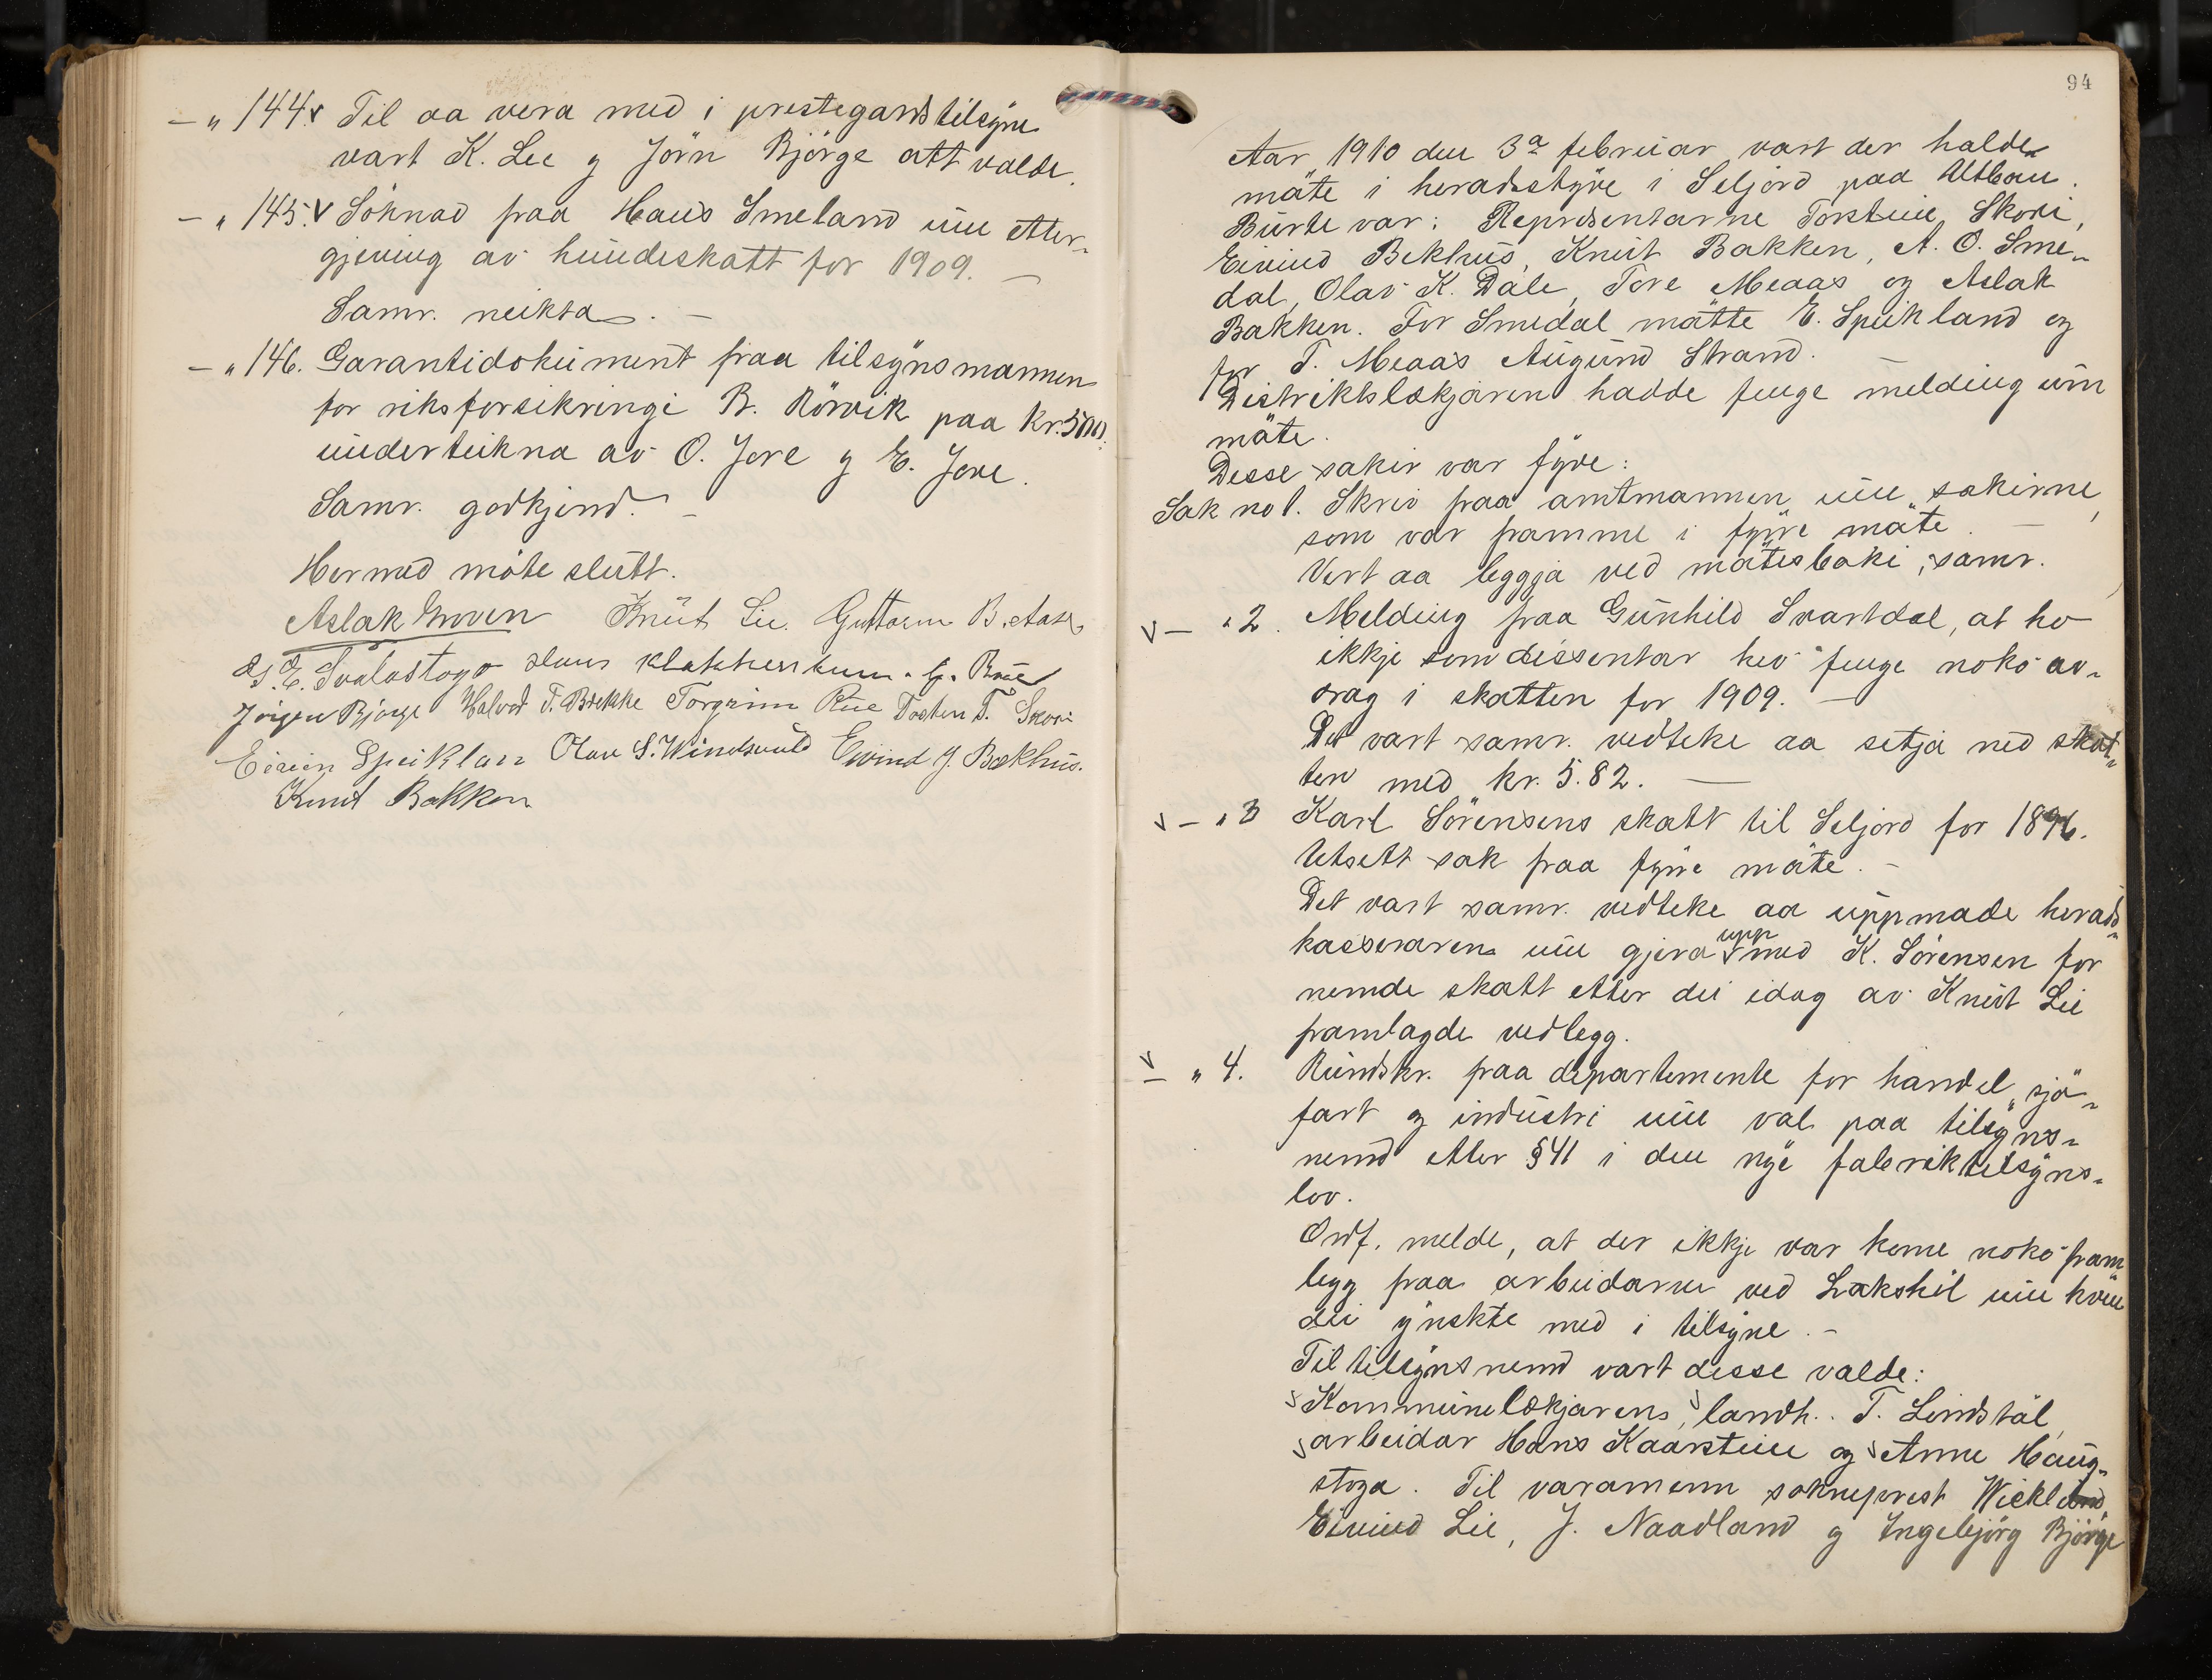 — „ 144. v Til aa vera med i prestegardstilsyne
vart K. Lee og Jörn Björge att valde.
— „ 145. v Söknad fraa Hans Smeland um etter-
gjeving av hundeskatt for 1909. —
Samr. neikta. —
— „ 146. Garantidokument fraa tilsynsmannen
for riksforsikringi B. Rörvik paa kr. 500
underteikna av O. Jore og E. Jore.
Samr. godkjend. —
Hermed möte slutt.
Aslak Knut Lie. Guttorm B. Aase
G. E. Svalastoga H. Rue
Jörgen Bjorge Halvod T. Brekke Torgrim Rue Torsten T. Skori
Eivin Speiklan Olav S. Eivind J. Bækhus.
Knut Bakken
94
Aar 1910 den 3a februar vart der halde
mäte i heradsstyre i Seljord paa Utbau.
Burte var: Represéntarne Torstein Skori,
Eivind Bekhus, Knut Bakken, A. O. Sme-
dal, Olav K. Dale, Tore Meaas og Aslak
Bakken. For Smedal mätte E. Speikland og
for T. Meaas Augund Strand.
Distriktslækjaren hadde fenge melding um
mäte.
Desse sakir var fyre:
Sak no 1. Skriv fraa amtmannen um sakirne,
som var framme i fyrre mäte. —
Vert aa leggja ved mätesboki, samr.
v — „ 2. Melding fraa Gunhild Svartdal, at ho
ikkje som dissentar hev fenge noko av-
drag i skatten for 1909. —
Det vart samr. vedteke aa setja ned skat-
ten med kr. 5.82. —
v — „ 3 Karl Sörensens skatt til Seljord for 1896.
Utsett sak fraa fyrre mäte. —
Det vart samr. vedteke aa uppmade herads-
kasseraren um gjera upp med K. Sörensen for
nemde skatt etter dei idag av Knut Lie
framlagde vedlegg.
v — „ 4. Rundskr. fraa departemente for handel, sjö-
fart og industri um val paa tilsyns-
nemd etter § 41 i den nye fabriktilsyns-
lov.
Ordf. melde, at der ikkje var kome noko fram
legg fraa arbeidarne ved Lakshöl um kven
dei ynskte med i tilsyne. —
Til tilsynsnemd vart desse valde:
Kommunelækjarens, landh. T. Lindstöl,
arbeidar Hans Kaarstein og Anne Haug-
stoga. Til varamenn sokneprest Wicklund,
Eivind Lie, J. Naadland og Ingebjörg Björge